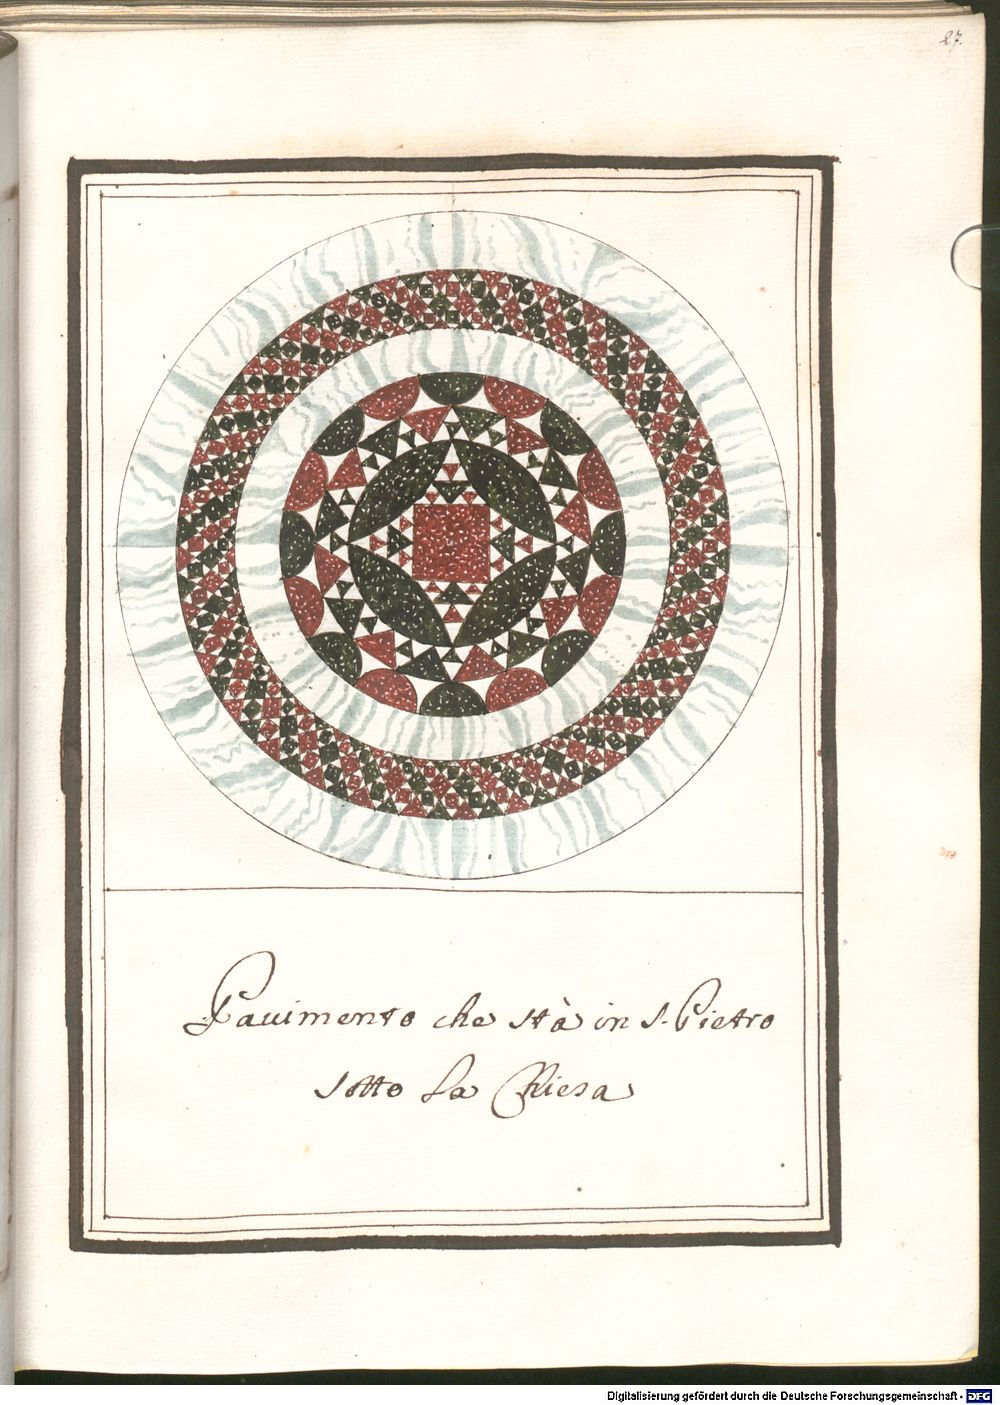 27.
Pauimento che stà in S. Pietro
sotto la Chiesa
Digitalisierung gefördert durch die Deutsche Forschungsgemeinschaft - DFG